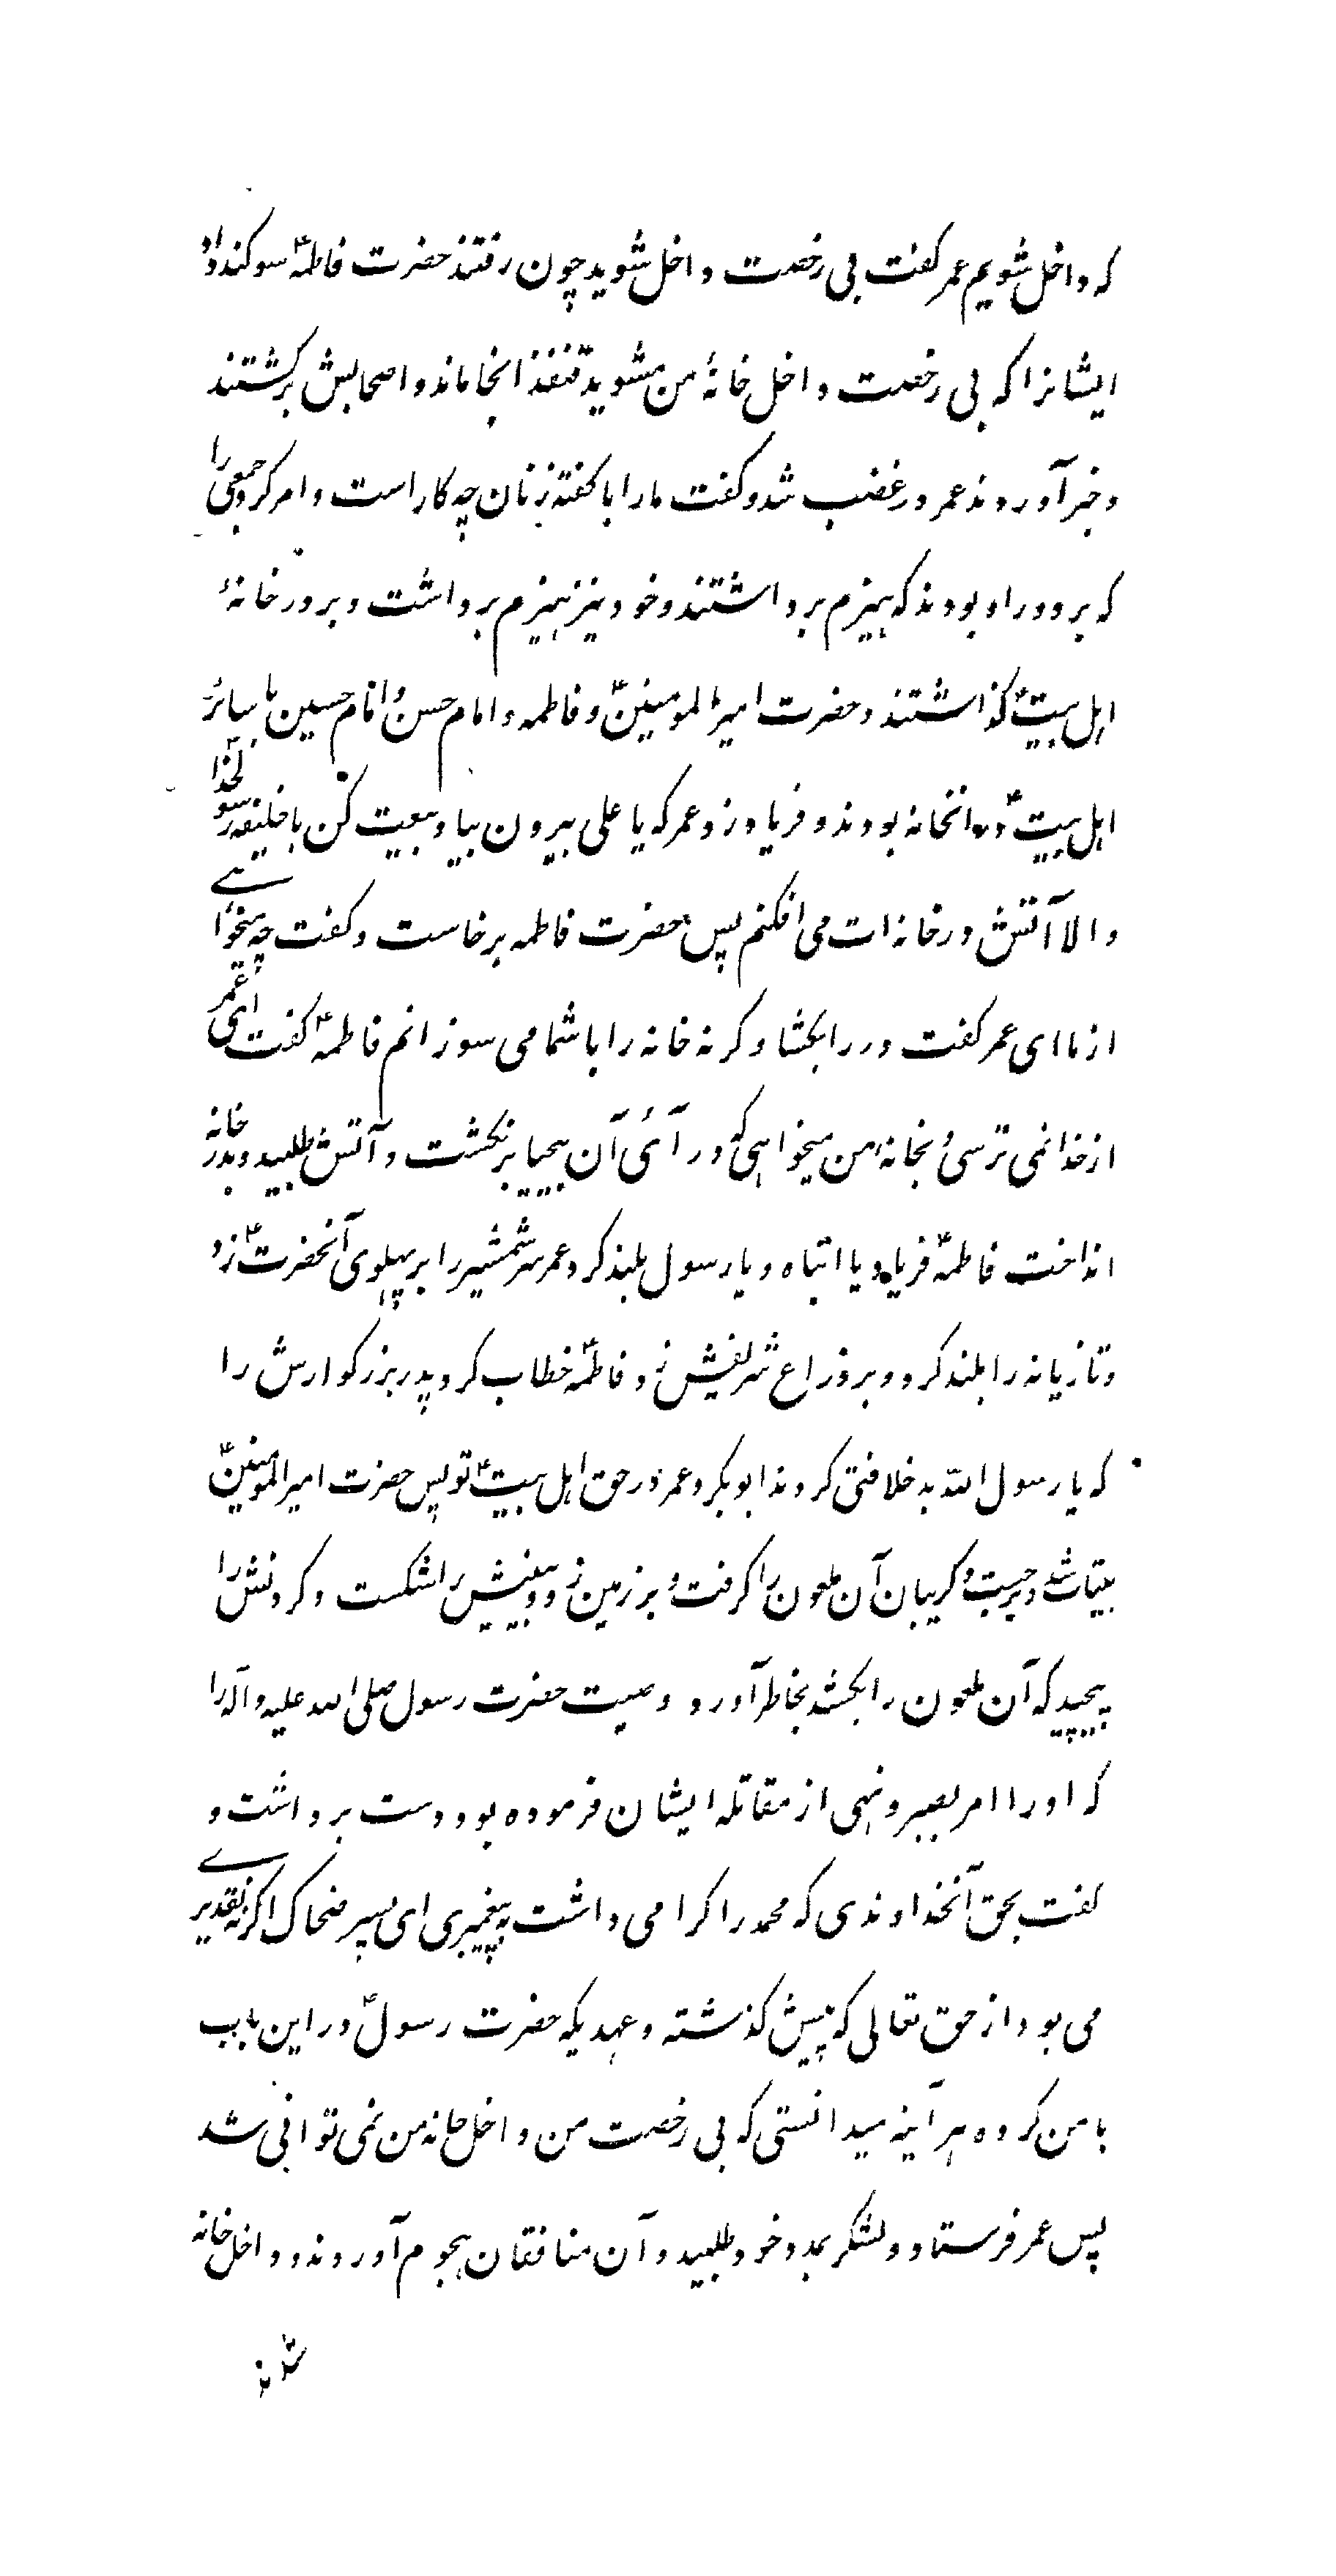 که داخل شویم عمر گفت بی رخصت داخل شوید چون رفتند حضرت فاطمهؑ سوکند داد
ایشانرا که بی رخصت داخل خانهٔ من مشوید قنفذ انجا ماند و اصحابش برگشتند
و خبر آوردند عمر در غضب شد و گفت مارا با گفته زنان چه کار است و امر کرد جمعی را
که بر دور او بودند که هیزم برداشتند و خود نیز هیزم برداشت و بر در خانهٔ
اهل بیتؑ گذاشتند و حضرت امیر المومنینؑ و فاطمه و امام حسن و امام حسین با سائر
اهل بیتؑ در انخانه بودند و فریاد زد عمر که یا علی بیرون بیا و بیعت کن با خلیفه رسولخدا
و الا آتش در خانه ات می افکنم پس حضرت فاطمه برخاست و گفت چه میخواهی
از ما ای عمر گفت در را بکشا و گرنه خانه را با شما می سوزانم فاطمهؑ گفت ای عمر
از خدا نمی ترسی بخانهٔ من میخواهی که در آئی آن بیحیا برنگشت و آتش طلبید و بدر خانه
انداخت فاطمهؑ فریاد یا ابتاه و یا رسول بلند کرد عمر سر شمشیر را بر پهلوی آنحضرتؑ زد
و تازیانه را بلند کرد و بر ذراع شریفش زد فاطمهؑ خطاب کرد پدر بزرگوارش را
که یا رسول الله بد خلافتی کردند ابو بکر و عمر در حق اهل بیتؑ تو پس حضرت امیر المومنینؑ
بیتاب شد و برجست و گریبان آن ملعون را گرفت و بر زمین زد و بینیش را شکست و گردنش را
پیچید که آن ملعون را بکشد بخاطر آورد وصیت حضرت رسول صلی الله علیه و آله را
که او را امر بصبر و نهی از مقاتله ایشان فرموده بود دست برداشت و
گفت بحق آنخداوندی که محمد را گرامی داشت به پیغمبری ای پسر ضحاک اگر نه تقدیری
می بود از حق تعالی که پیش گذشته و عهدیکه حضرت رسولؑ در این باب
با من کرده هر آینه میدانستی که بی رخصت من داخل خانه من نمی توانی شد
پس عمر فرستاد و لشکر بمدد خود طلبید و آن منافقان هجوم آوردند و داخل خانه
شدند